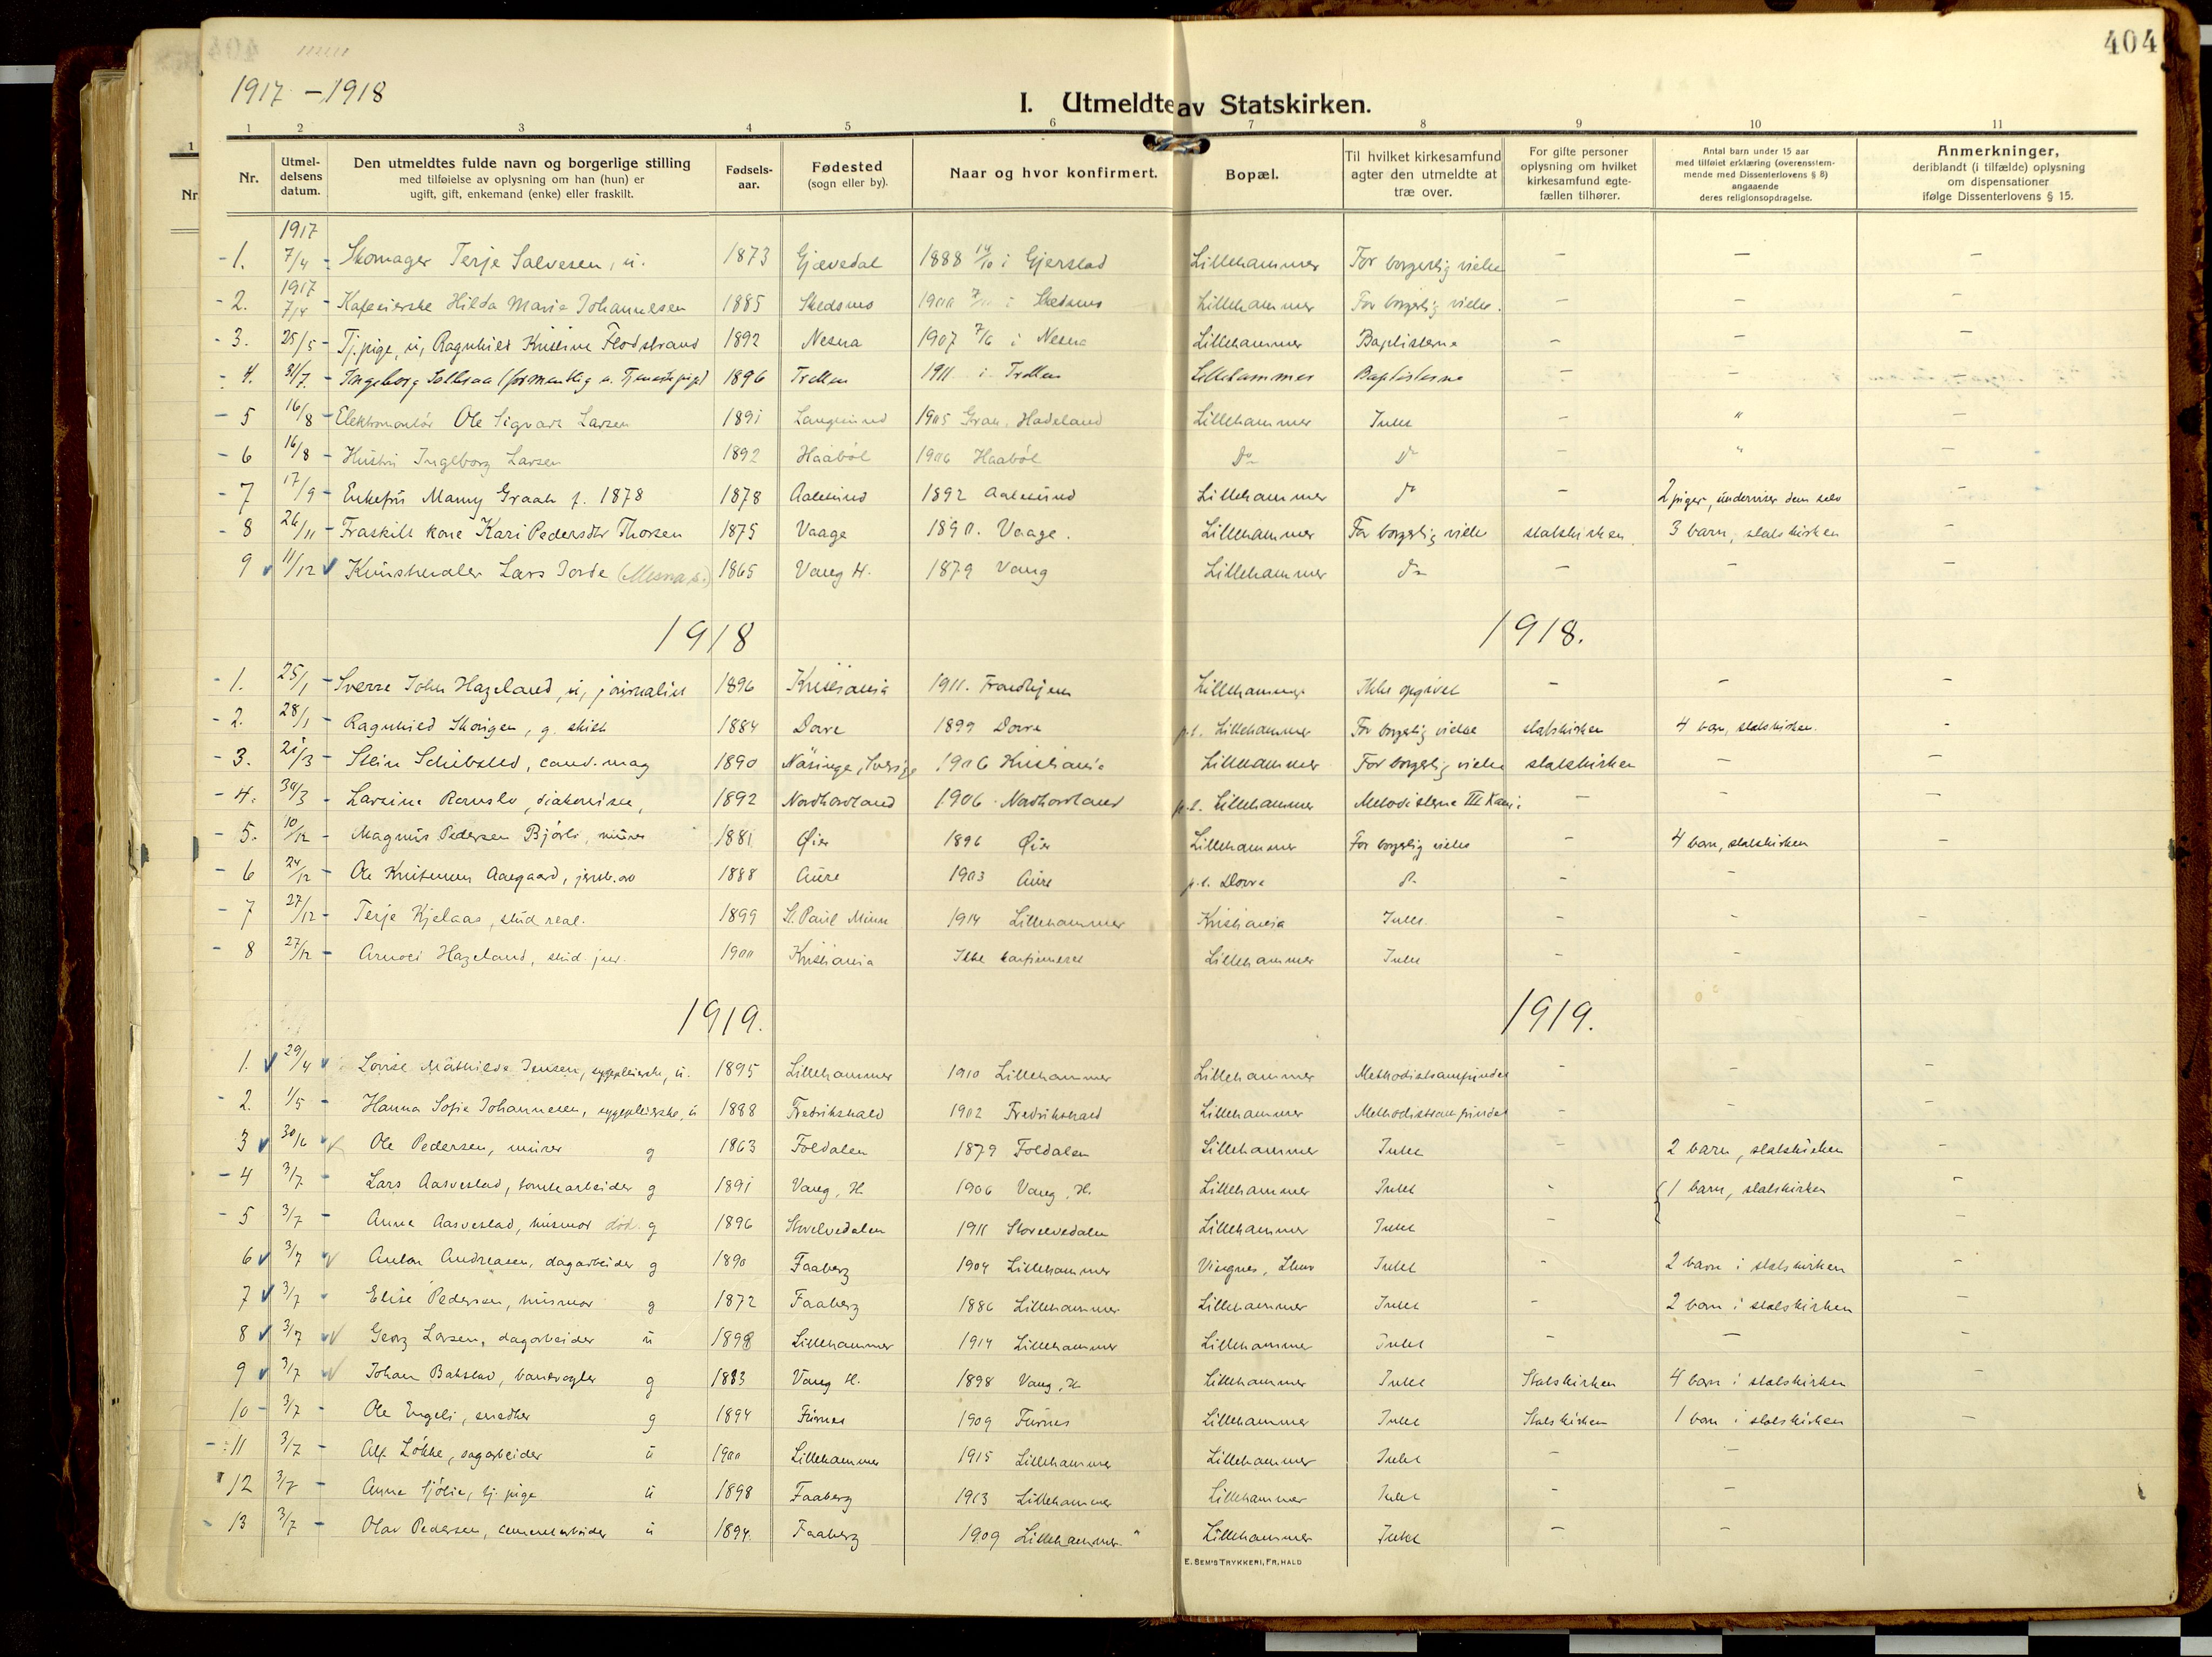 404
1917 - 1918
I. Utmeldte av Statskirken.
1 2 3 4 5 6 7 8 9 10 11
Nr. | Utmeldelsens datum. | Den utmeldtes fulde navn og borgerlige stilling med tilføielse av oplysning om han (hun) er ugift, gift, enkemand (enke) eller fraskilt. | Fødselsaar. | Fødested (sogn eller by). | Naar og hvor konfirmert. | Bopæl. | Til hvilket kirkesamfund agter den utmeldte at træ over. | For gifte personer oplysning om hvilket kirkesamfund egtefællen tilhører. | Antal barn under 15 aar med tilføiet erklæring (overensstemmende med Dissenterlovens § 8) angaaende deres religionsopdragelse. | Anmerkninger, deriblandt (i tilfælde) oplysning om dispensationer ifølge Dissenterlovens § 15.
1917
1. 7/4 Skomager Terje Salvesen, u. 1873 Gjævedal 1888 14/10 i Gjerstad Lillehammer For borgerlig vielse - - -
1917
2. 7/4 Kafeeierske Hilda Marie Johannesen 1885 Skedsmo 1900 i Skedsmo Lillehammer For borgerlig vielse. - - -
3. 25/5 Tj. pige, u, Ragnhild Kristine Flodstrand 1892 Nesna 1907 7/6 i Nesna Lillehammer Baptisterne - - -
4. 31/7 Ingeborg (formentlig u. Tjenestepige) 1896 1911 i Lillehammer Baptisterne - - -
5 16/8 Elektromontør Ole Sigvart Larsen 1891 Langesund 1905 Gran. Hadeland Lillehammer Intet - " -
6 16/8 Hustru Ingeborg Larsen 1892 Haabøl 1906 Haabøl Do do - " -
7 17/9 Enkefru Manny Graah f. 1878 1878 Aalesund 1892 Aalesund Lillehammer do - 2 piger, underviser dem selv -
8 26/11 Fraskilt kone Kari Pedersdtr Thorsen 1875 Vaage 1890. Vaage. Lillehammer For borgerlig vielse statskirken. 3 barn, statskirken -
9 11/12 Kunstmaler Lars Jorde (Mesna.) 1865 Vang H. 1879 Vang Lillehammer do - - -
1918 1918.
1. 25/1 Sverre John Hageland, u, journalist 1896 Kristiania 1911. Trondhjem Lillehammer Ikke opgivet - - -
2. 28/1 Ragnhild Skotgen, g. skilt 1884 Dovre 1899 Dovre p.t. Lillehammer For borgerlig vielse statskirken 4 barn, statskirken. -
3. 21/3 Stein Schibsted, cand. mag 1890 Näsinge, Sverige 1906 Kristiania Lillehammer For borgerlig vielse statskirken - -
4. 30/3 Larsine, diakonisse, 1892 Nordhordland 1906. Nordhordland p.t. Lillehammer Metodisterne III - - -
5. 10/12 Magnus Pedersen Bjørli, murer 1881 Øier 1896 Øier Lillehammer For borgerlig vielse - 4 barn, statskirken -
6 24/12 Ole Kristensen Aaegaard, jernb. arb 1888 Aure 1903 Aure p.t. Dovre do - - -
7 27/12 Terje Kjelaas, stud. real. 1899 St. Paul Minn 1914 Lillehammer Kristiania Intet. - - -
8 27/12 Arnold Hazeland, stud. jur. 1900 Kristiania Ikke konfirmeret Lillehammer Intet - -
1919. 1919.
1. 29/4 Lovise Mathilde Jensen, sygepleierske, u. 1895 Lillehammer 1910 Lillehammer Lillehammer Methodistsamfundet - - -
2. 1/5 Hanna Sofie Johannesen, sygepleierske, u 1888 Fredrikshald 1902 Fredrikshald Lillehammer Methodistsamfundet - - -
3 30/6 Ole Pedersen, murer g 1863 Foldalen 1879 Foldalen Lillehammer Intet - 2 barn, statskirken -
4 3/7 Lars Aasvestad, tomtearbeider g 1891 Vang, H. 1906 Vang, H. Lillehammer Intet - { 1 barn, statskirken -
5 3/7 Anna Aasvestad, husmor død. g 1896 Storelvedalen 1911 Storelvedalen Lillehammer Intet - -
6 3/7 Anton Andreasen, dagarbeider g 1890 Faaberg 1904 Lillehammer Vingnes, Lhmr Intet - 2 barn i statskirken -
7 3/7 Elise Pedersen, husmor g 1872 Faaberg 1886 Lillehammer Lillehammer Intet - 2 barn i statskirken -
8 3/7 Georg Larsen, dagarbeider u 1898 Lillehammer 1914 Lillehammer Lillehammer Intet - - -
9 3/7 Johan Bakstad, banevogter g 1883 Vang H. 1898 Vang, H. Lillehammer Intet Statskirken 4 barn i statskirken -
10 3/7 Ole Engeli, snedker g 1894 Furnes 1909 Furnes Lillehammer Intet Statskirken 1 barn i statskirken -
11 3/7 Alf Løkke, sagarbeider u 1900 Lillehammer 1915 Lillehammer Lillehammer Intet - -
12 3/7 Anna Sjølie, tj. pige u 1898 Faaberg 1913 Lillehammer Lillehammer Intet - -
13 3/7 Olav Pedersen, cementarbeider u 1894. Faaberg 1909 Lillehammer " Lillehammer Intet - -
E. SEM'S TRYKKERI, FR. HALD